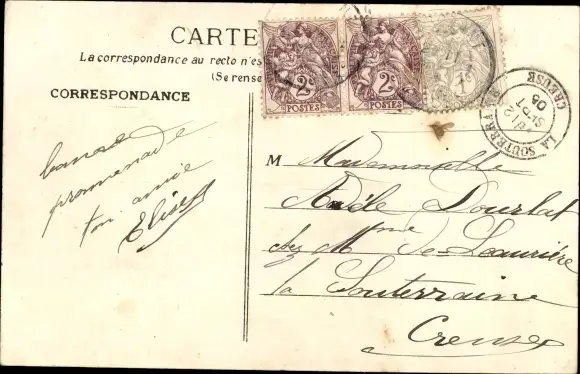 CARTE
La correspondance au recto n'es
(Se rense
CORRESPONDANCE
promenade
ton amie
Elise
2c
POSTES
2c
POSTES
1c
LA SOUTERRAINE
CREUSE
12
SEPT
05
M Mademoiselle
Adèle Dourlat
chez Mme de Laurière
la Souterraine
Creuse